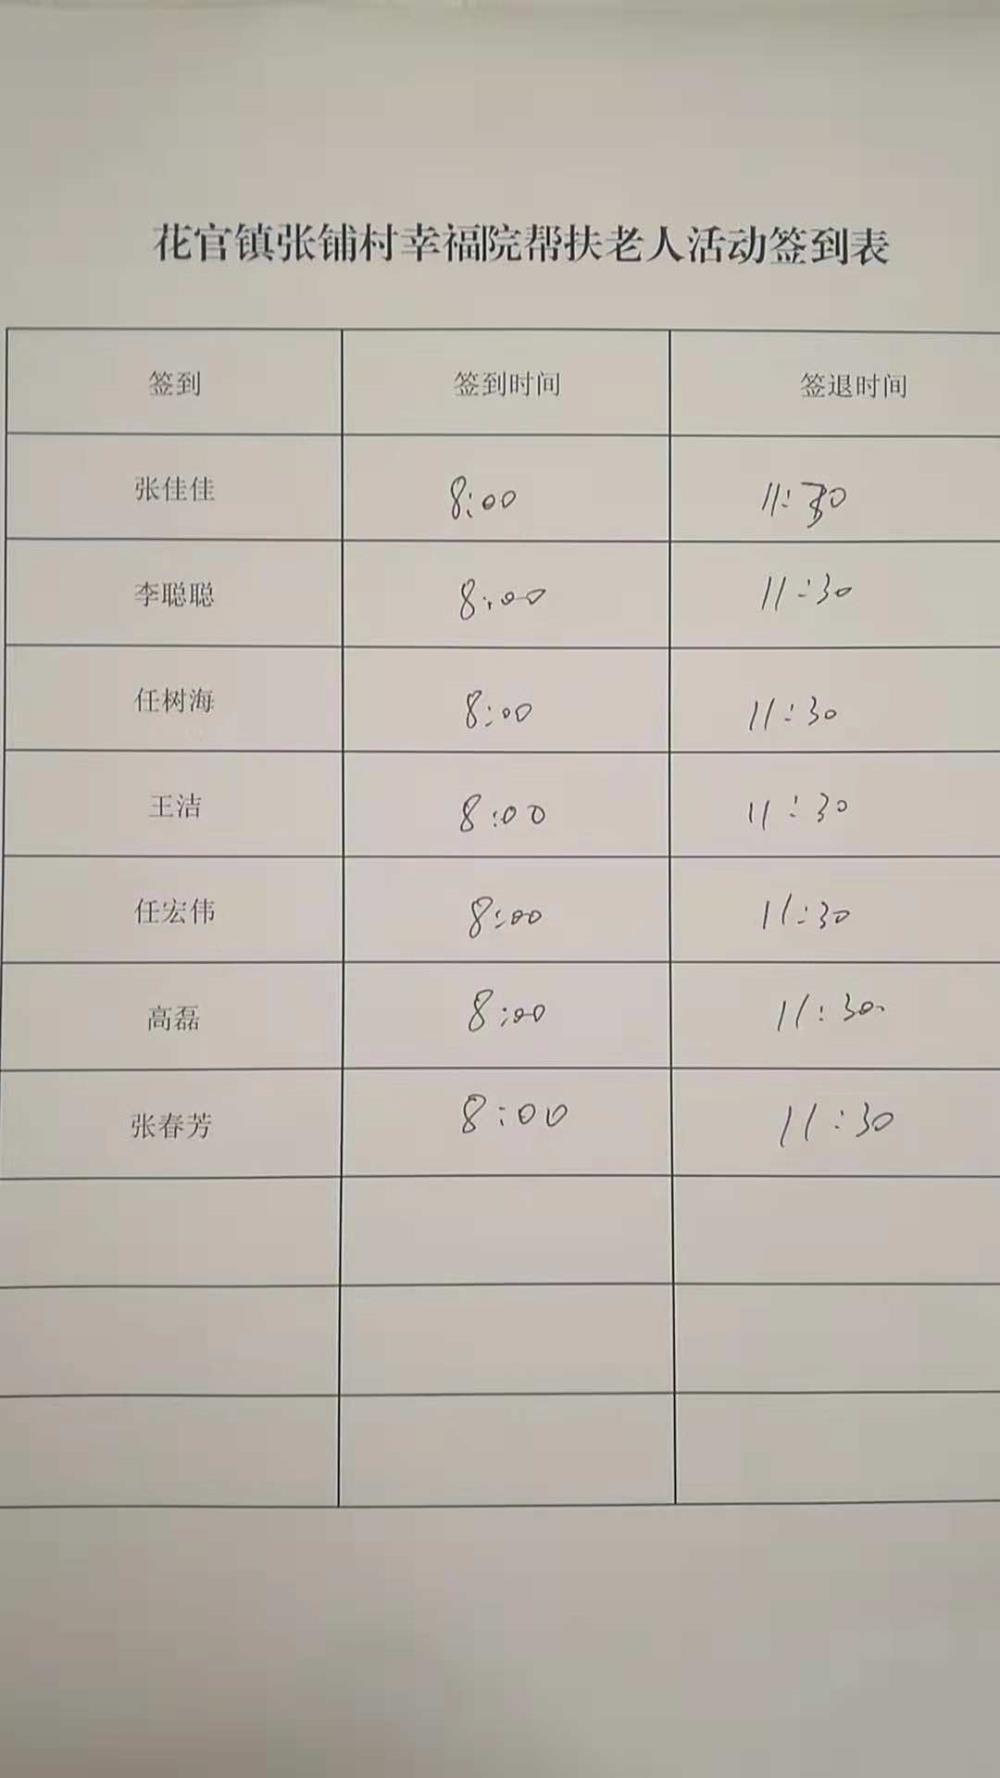 花官镇张铺村幸福院帮扶老人活动签到表
签到 签到时间 签退时间
张佳佳 8:00 11:30
李聪聪 8:00 11:30
任树海 8:00 11:30
王洁 8:00 11:30
任宏伟 8:00 11:30
高磊 8:00 11:30
张春芳 8:00 11:30